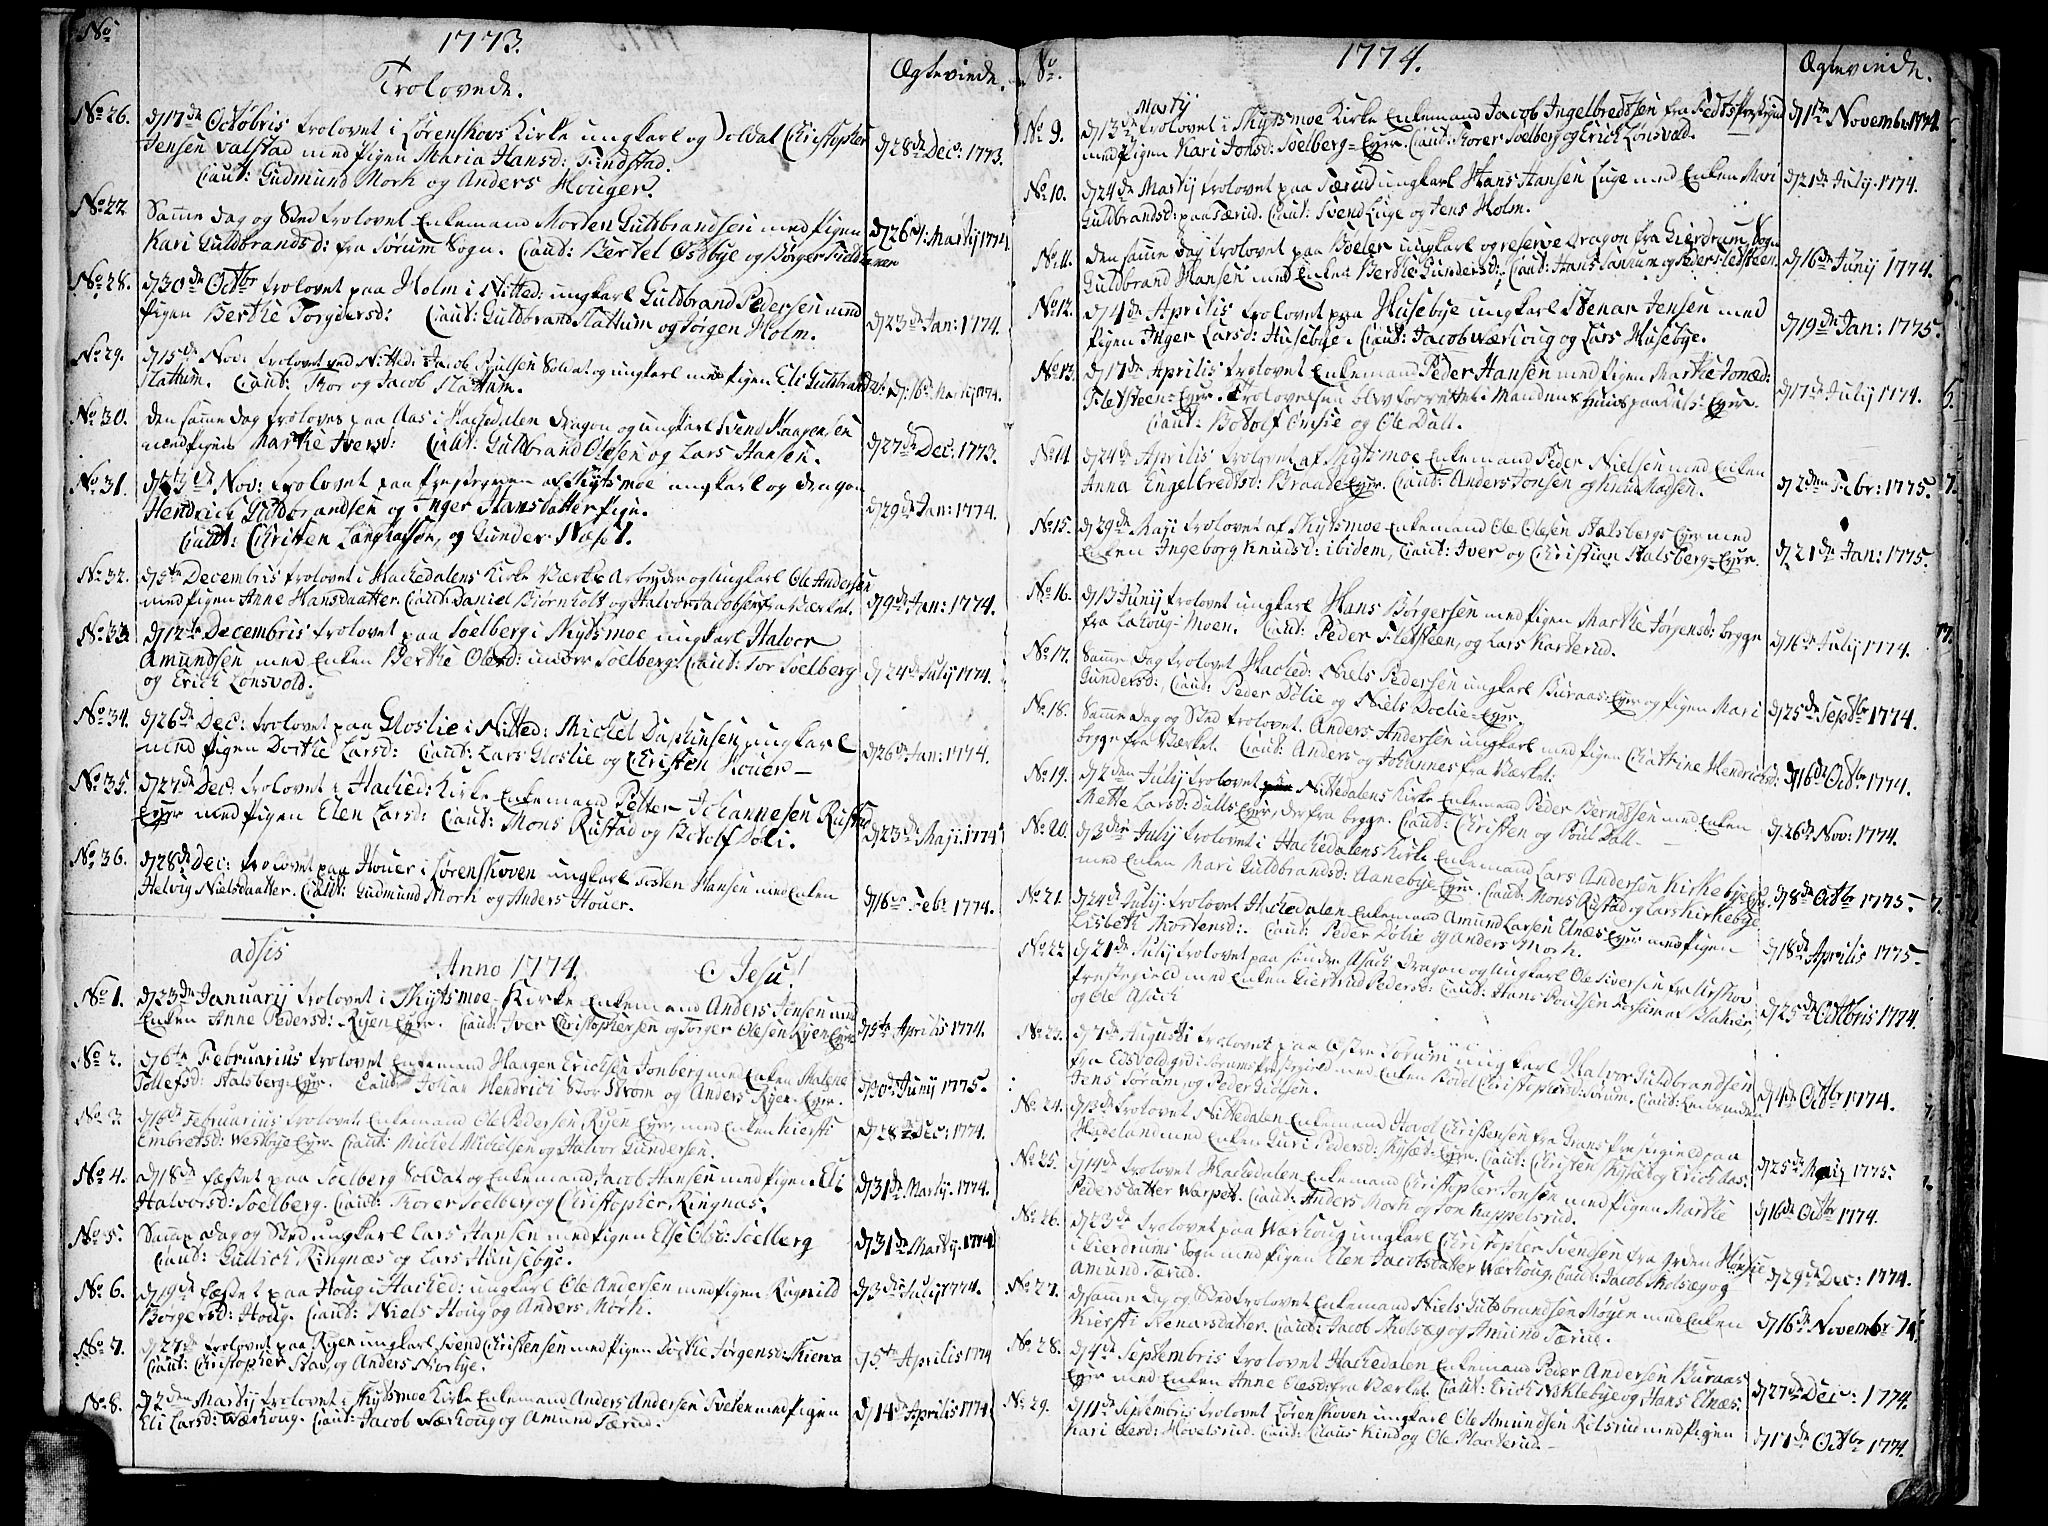 No
1773.
Trolovede.
Ægtevinde.
No 26.
d 17de Octobris trolovet i Lørenskovs Kirke ungkarl og Soldat Christopher
Jensen Valstad med Pigen Maria Hansd: Findstad.
Caut: Gudmund Mork og Anders Houger.
d 28de Decr: 1773.
No 22
Samme dag og Sted trolovet Enkemand Morden Guldbrandsen med Pigen
Kari Guldbrandsd: fra Sørum Sogn. Caut: Bertel Østbye og Børger
d 26de Martij 1774
No 28.
d 30de Octbr trolovet paa Holm i Nitted: ungkarl Guldbrand Pedersen med
Pigen Berthe Torgiersd: Caut: Guldbrand Slattum og Jørgen Holm.
d 23de Jan: 1774.
No 29.
d 15de Nov: trolovet ved Nitted: Jacob Poulsen Soldat og ungkarl med Pigen Eli Guldbrandsd:
Slattum. Caut: Thor og Jacob Slattum.
d 16de Martij 1774.
No 30.
den samme dag troloves paa Aas i Hackedalen Dragon og ungkarl Svend Haagensen
med Pigen Marthe Iversd: Caut: Guldbrand Olesen og Lars Hansen.
d 27de Dec: 1773.
No 31.
d 23de Nov: trolovet paa Præstegaarden af Skytsmoe ungkarl og dragon
Hendrich Guldbrandsen og Inger Hansdatter Pige.
Caut: Christen Langhalsen, og Gunder Næs.
d 29de Jan: 1774.
No 32.
d 5te Decembris trolovet i Hackedalens Kirke Værks Arbeyder og Ungkarl Ole Andersen
med Pigen Anne Hansdaatter. Caut: Daniel Biørnholt og Halvor Jacobsen fra Værket.
d 9de Jan: 1774.
No 33
d 12te Decembris trolovet paa Soelberg i Skytsmoe ungkarl Halvor
Amundsen med Enken Berthe Olesd: under Soelberg: Caut: Tor Soelberg
og Erich Lonsvold.
d 24de July 1774.
No 34.
d 26de Dec: trolovet paa Gloslie i Nitted: Michel Daphinsen ungkarl
med Pigen Dorthe Larsd: Caut: Lars Gloslie og Christen Houer
d 26de Jan: 1774.
No 35.
d 27de Dec: trolovet i Hacked: Kirke Enkemand Petter Johannesen Rustad
Eyer med Pigen Elen Larsd: Caut: Mons Rustad og Botolf Døli.
d 23de Maji. 1774
No 36.
d 28de Dec: trolovet paa Houer i Lørenskoven ungkarl Torsten Hansen med Enken
Helvig Nielsdaatter. Caut: Gudmund Mork og Anders Houer.
d 16de Febr 1774.
adsis
Anno 1774
O Jesu!
No 1.
d 23de Januarij trolovet i Skytsmoe Kirke Enkemand Anders Jonsen med
Enken Anne Pedersd: Ryen Eyer. Caut: Iver Christophersen og Torger Olesen Ryen Eyer
d 5te Aprilis 1774.
No 2.
d 6te Februarius trolovet Enkemand Haagen Erichsen Jonberg med Enken Malene
Tollefsd: Stalsberg Eyer. Caut: Johan Hendrich Stor Strøm og Anders Ryen Eyer.
d 30de Junij 1775.
No 3
d 15de Februarius trolovet Enkemand Ole Pedersen Ryen Eyer med Enken Kiersti
Embretsd: Westbye Eyer. Caut: Michel Michelsen og Halvor Gundersen.
d 28de Dec: 1774.
No 4.
d 18de fæstet paa Soelberg Soldat og Enkemand Jacob Hansen med Pigen Eli
Halvorsd: Soelberg. Caut: Thorer Soelberg og Christopher Ringnæs.
d 31de Martij. 1774.
No 5.
Samme dag og Sted ungkarl Lars Hansen med Pigen Else Olsd: Soelberg
Caut: Gullich Ringnæs og Lars Huusebye.
d 31de Martij. 1774
No 6.
d 19de fæstet paa Houg i Hacked: ungkarl Ole Andersen med Pigen Ragnild
Børgersd: Houg. Caut: Niels Houg og Anders Mork.
d 3de July 1774.
No 7.
d 27de trolovet paa Ryen ungkarl Svend Christensen med Pigen Dorthe Jørgensd: Skierva
Caut: Christopher Stav og Anders Norbye.
d 5te Aprilis 1774
No 8.
d 2den Martij trolovet i Skytsmoe Kirke Enkemand Anders Andersen Tveten med Pigen
Eli Larsd: Wærhoug. Caut: Jacob Wærhoug og Amund Færud.
d 14de Aprilis 1774
No.
1774.
Ægtevinde.
No 9.
Martij
d 13de trolovet i Skytsmoe Kirke Enkemand Jacob Ingelbredtsen fra Fedts Præstegield
med Pigen Kari Johsd: Soelberg-Eyer. Caut: Thorer Soelberg og Erich Lonsvold.
d 1te Novembr. 1774.
No 10.
d 24de Martij trolovet paa Færud ungkarl Hans Hansen Luge med Enken Mari
Guldbrandsd: paa Færud. Caut: Svend Luge og Jens Holm.
d 21de July. 1774.
No 11.
den samme Dag trolovet paa Bøeler ungkarl og reserve Dragon fra Gierdrum Sogn
Guldbrand Hansen med Enken Berthe Gundersd: Caut: Hans og Peder Fletsteen.
d 16de Junij 1774.
No 12.
d 4de Aprilis trolovet paa Husebye ungkarl Stenar Jensen med
Pigen Inger Larsd: Husebye. Caut: Jacob Wærhoug og Lars Husebye.
d 19de Jan: 1775.
No 13.
d 17de Aprilis trolovet Enkemand Peder Hansen med Pigen Marthe Jonæd:
Fletsteen-Eyer. Trolovelsen blev forrettet i Mandens Huus paa Dals-Eyer.
Caut: Botolf Ørisie og Ole Dall.
d 17de July 1774.
No 14
d 24de Aprilis trolovet af Skytsmoe Enkemand Peder Nielsen med Enken
Anna Engelbredtsd: Braade-Eyer. Caut: Anders Jonsen og Knud Madsen.
d 2den Febr: 1775.
No 15.
d 29de Maji trolovet af Skytsmoe Enkemand Ole Olesen Stalsbergs Eyer med
Enken Ingeborg Knudsd: ibidem, Caut: Iver og Christian Stalsberg-Eyer.
d 21de Jan: 1775.
No 16.
d 13 Junij trolovet ungkarl Hans Børgersen med Pigen Marthe Jørgensd: begge
fra Lahoug-Moen. Caut: Peder Fletsteen, og Lars Karterud.
d 16de July 1774.
No 17.
Samme Dag trolovet Hacked: Niels Pedersen ungkarl Buraas-Eyer og Pigen Mari
Gundersd: Caut: Peder Dølie og Niels Doelie-Eyer.
d 25de Septbr 1774.
No 18.
Samme Dag og Sted trolovet Anders Andersen ungkarl med Pigen Chathrine Hendrichsd:
begge fra Værket. Caut: Anders og Johannes fra Værket.
d 16de Octbr 1774.
No 19.
d 2den July trolovet Nittedalens Kirke Enkemand Peder Berndtsen med Enken
Mette Larsd: Dalls Eyer, derfra begge. Caut: Christen og Poul Dall
d 26de Nov: 1774.
No 20.
d 3die July trolovet i Hackedalens Kirke Enkemand Lars Andersen Kirkebye Eyer
med Enken Mari Guldbrandsd: Aanebye Eyer. Caut: Mons Rustad og Lars Kirkebye
d 8de Octbr 1775.
No 21.
d 24de July trolovet Hackedalen Enkemand Amund Larsen Elnæs Eyer med Pigen
Lisbeth Mortensd: Caut: Peder Dølie og Anders Mork.
d 18de Aprilis 1775
No 22
d 21de July trolovet paa Søndre Asach Dragon og Ungkarl Ole Siversen fra Urskov
Præstegield med Enken Giertrud Pedersd: Caut: Hans Poulsen Forsum af Blakier
og Ole Asach
d 25de Octobris 1774.
No 23.
d 7de Augusti trolovet paa Østre Sørum ungkarl Halvor Guldbrandsen
fra Edsvold grd i Sørums Præstegield med Enken Bodel Christophersd: Sørum. Caut:
Jens Sørum og Peder Gulsen.
d 4de Octbr 1774.
No 24.
d 13de trolovet Nittedalen Enkemand Stavol Christensen fra Grans Præstegield paa
Hadeland med Enken Guri Pedersd: Kyset-Eyer. Caut: Christen Skyset og Erich Aas.
d 25de Maij 1775.
No 25.
d 14de trolovet Hackedalen Enkemand Christopher Jonsen med Pigen Marthe
Pedersdatter Warpet. Caut: Anders Mork og Jon Kappelsrud.
d 16de Octbr 1774.
No 26.
d 23de trolovet paa Wærhoug ungkarl Christopher Svendsen fra Grden Hønsie
i Gierdrums Sogn med Pigen Elen Jacobsdatter Wærhoug. Caut: Jacob Skelsæg og
Amund Færud.
d 29de Dec: 1774.
No 27.
d samme Dag og Sted trolovet Enkemand Niels Guldbrandsen Møyen med Enken
Kiersti Stenarsdatter. Caut: Jacob Skelsæg og Amund Færud.
d 16de Novembr 74
No 28.
d 4de Septembris trolovet Hackedalen Enkemand Peder Andersen Buraas
Eyer med Enken Anne Olesd: fra Værket. Caut: Erich Nicklebye og Hans Elnæs.
d 27de Dec: 1774.
No 29.
d 11de Septembris trolovet Lørenskoven ungkarl Ole Amundsen Kilsrud med Pigen
Kari Olerd: Hovelsrud. Caut: Claus Kind og Ole Plaaterud.
d 17de Octbr 1774.